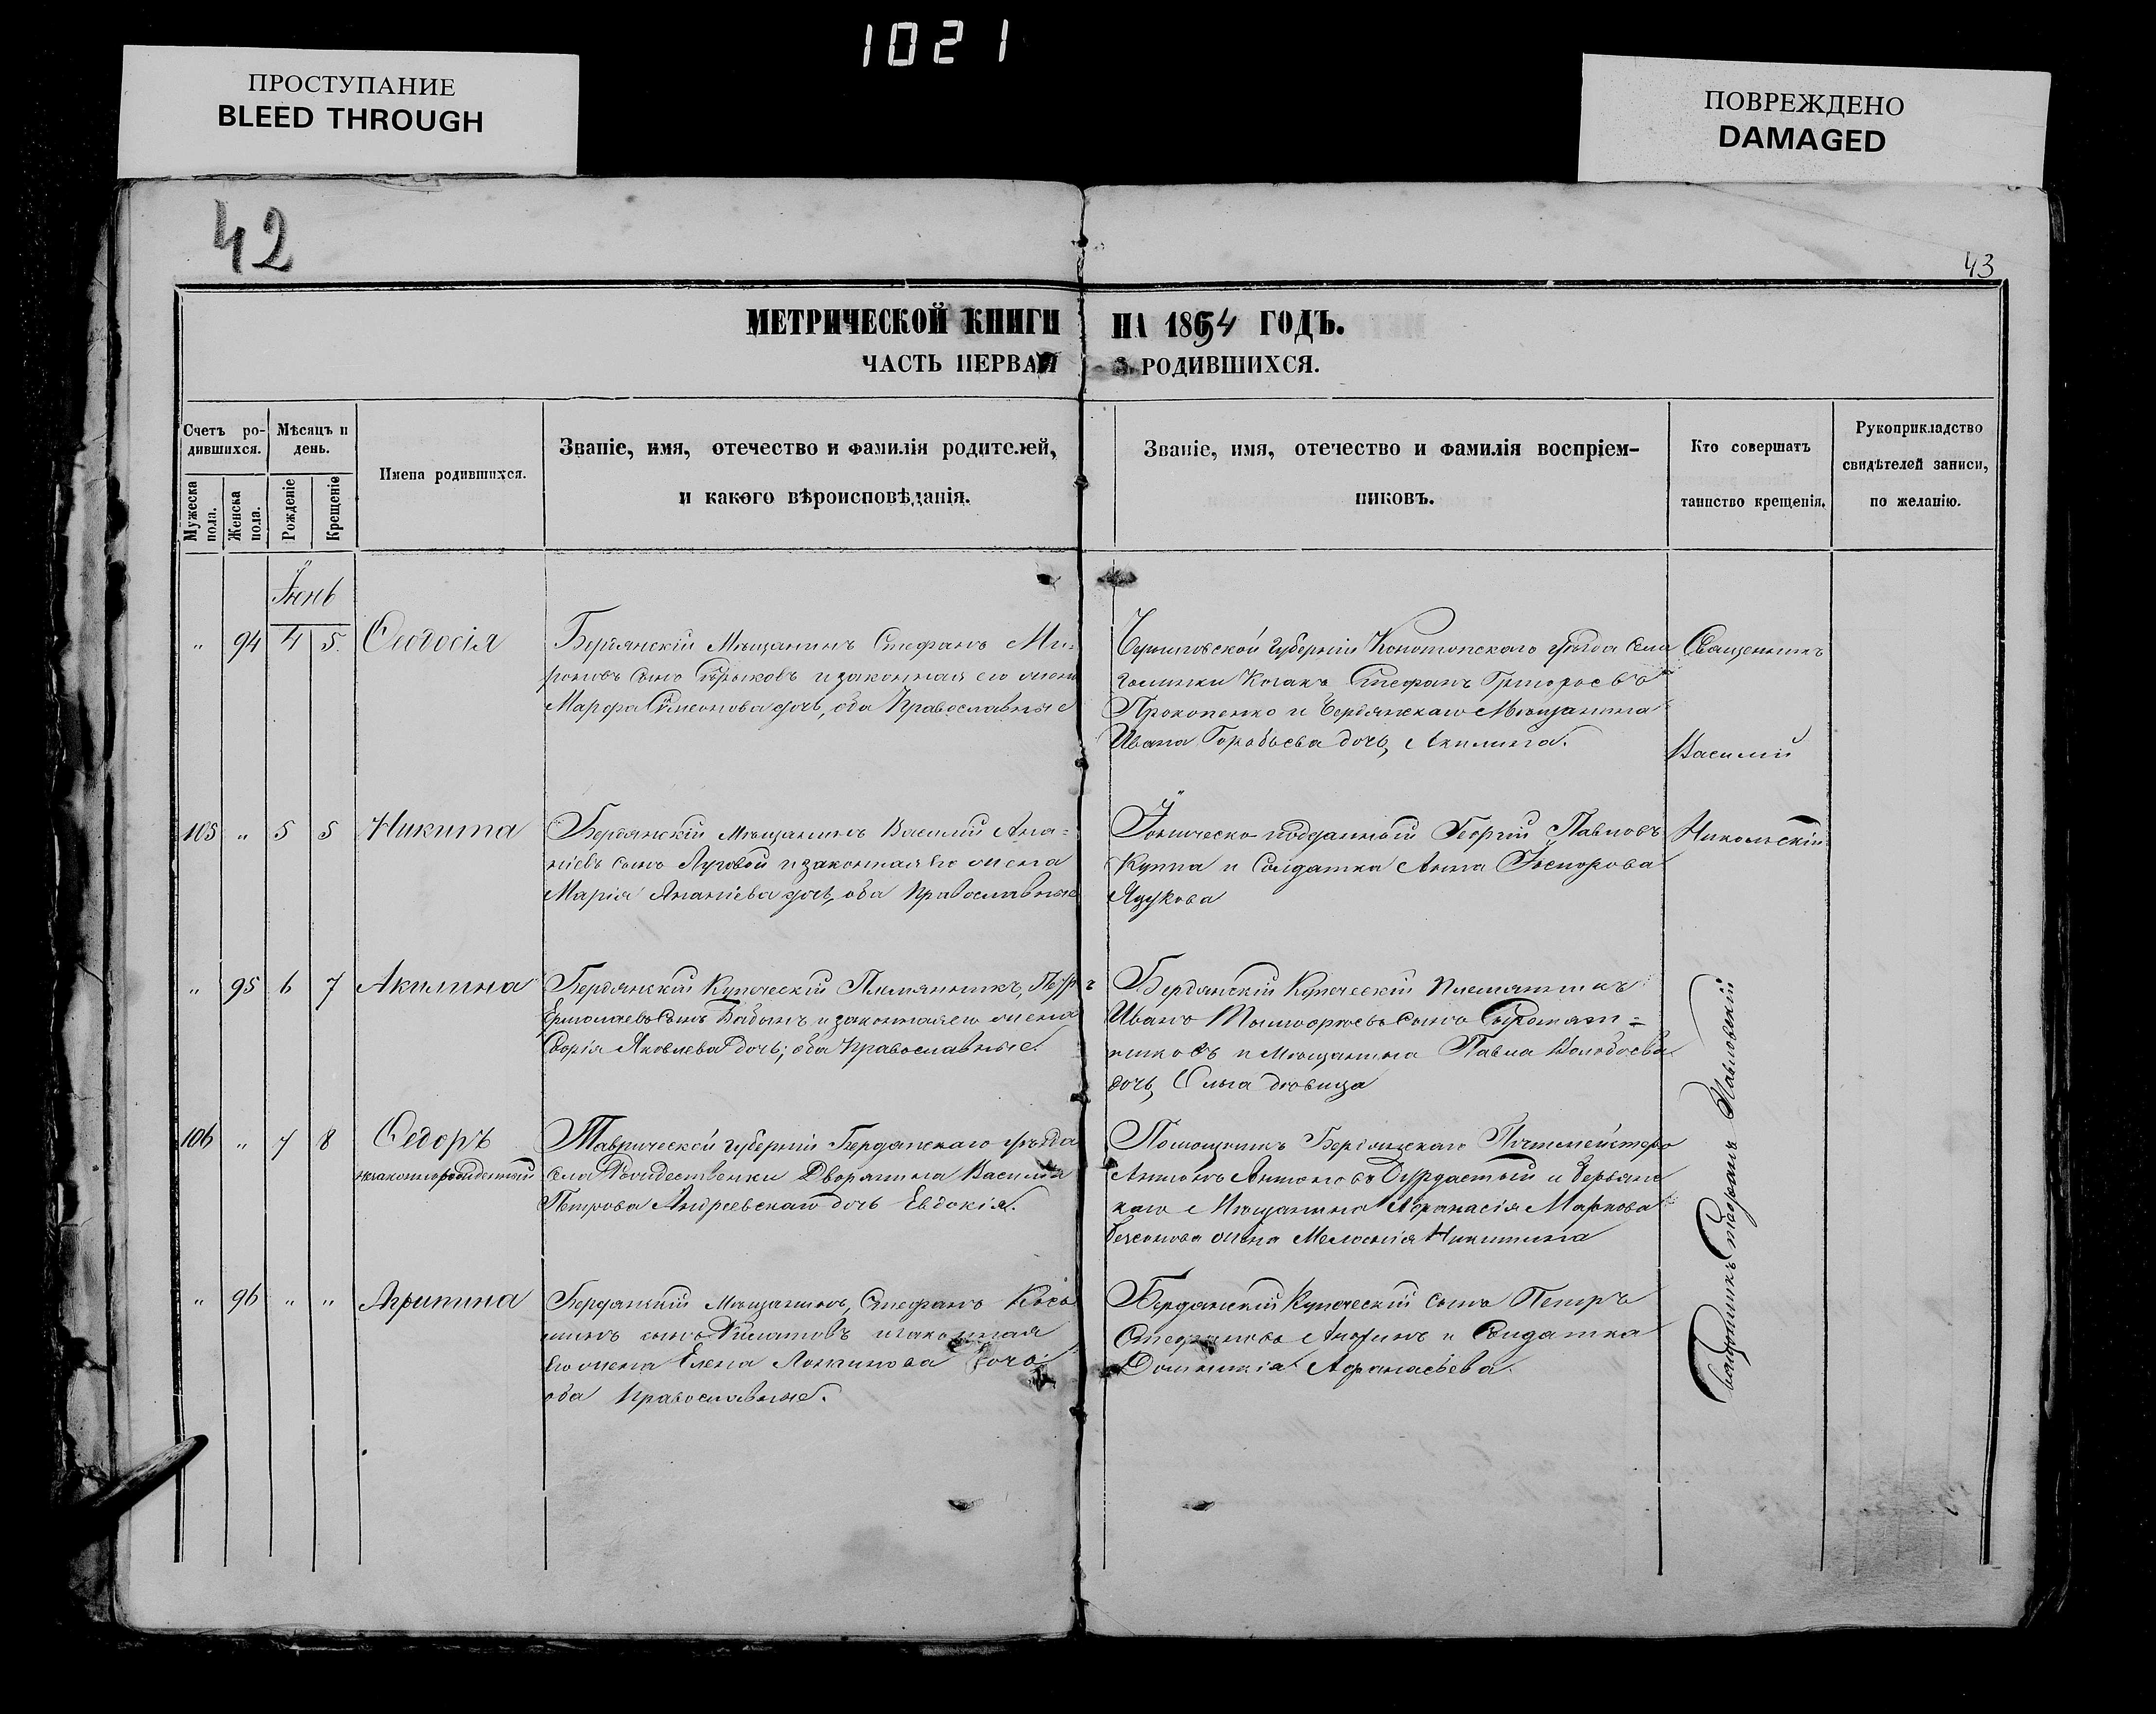 1021
ПРОСТУПАНИЕ
BLEED THROUGH
ПОВРЕЖДЕНО
DAMAGED
42
43
МЕТРИЧЕСКОЙ КНИГИ НА 1854 ГОДЪ.
ЧАСТЬ ПЕРВАЯ РОДИВШИХСЯ.
Счетъ ро-
дившихся.
Мужеска
пола.
Женска
пола.
Мѣсяцъ и
день.
Рожденіе
Крещеніе
Имена родившихся.
Званіе, имя, отечество и фамилія родителей,
и какого вѣроисповѣданія.
Званіе, имя, отечество и фамилія воспріем-
никовъ.
Кто совершатъ
таинство крещенія.
Рукоприкладство
свидѣтелей записи,
по желанію.
Іюнь
" 94 4 5. Ѳеодосія
Бердянскій Мѣщанинъ Стефанъ Ми-
роновъ сынъ и законная его жена
Марфа Симеонова дочь, оба Православные
Черниговской губерніи Конотопскаго уѣзда села
Козакъ Стефанъ Григорьевъ
Прокопенко и Бердянскаго Мѣщанина
Ивана Горобьева дочь, Акилина.
Священникъ
Василий
Никольскій
105 " 5 5 Никита
Бердянскій Мѣщанинъ Василий Ана-
ніевъ сынъ Луговой и законная его жена
Марія Ананіева дочь, оба Православные
Іоническо-подданный Георгий Павловъ
Куппа и Солдатка Анна
Язукова
" 95 6 7 Акилина
Бердянскій Купеческій Племянникъ, Петръ
Ермолаевъ сынъ Бабынъ и законная его жена
Яковлева дочь; оба Православные.
Бердянскій Купеческій племянникъ
Иванъ Тимофеевъ сынъ Сыромят-
никовъ и Мѣщанина Павла
дочь, Ольга дѣвица
106 " 7 8 Ѳедоръ
незаконнорожденный
Таврической губерніи Бердянскаго уѣзда
села Рождественки Дворянина Василия
Петрова Андреевскаго дочь Евдокія.
Помощникъ Бердянскаго Почтмейстера
Антонъ Антоновъ и Бердянс
каго Мѣщанина Афанасія Маркова
жена Меланія Никитина
" 96 " " Агрипина
Бердянскій Мѣщанинъ, Стефанъ
сынъ Филатовъ и законная
его жена Елена Логинова дочь
оба Православные.
Бердянскій Купеческій сынъ Петръ
Стефановъ и Солдатка
Домникія Афанасьева.
Священникъ Стефанъ Павловскій